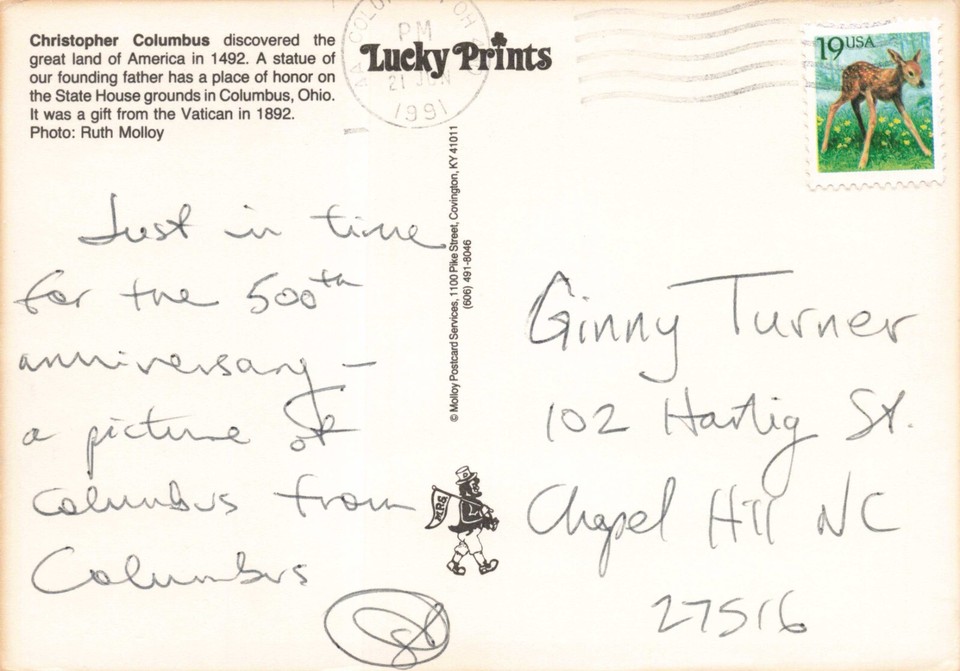 Christopher Columbus discovered the
great land of America in 1492. A statue of
our founding father has a place of honor on
the State House grounds in Columbus, Ohio.
It was a gift from the Vatican in 1892.
Photo: Ruth Molloy
Lucky Prints
PM
21
1991
19 USA
Just in time
for the 500th
anniversary –
a picture of
Columbus from
Columbus
© Molloy Postcard Services, 1100 Pike Street, Covington, KY 41011
(606) 491-8046
Ginny Turner
102 Hartig St.
Chapel Hill NC
27516